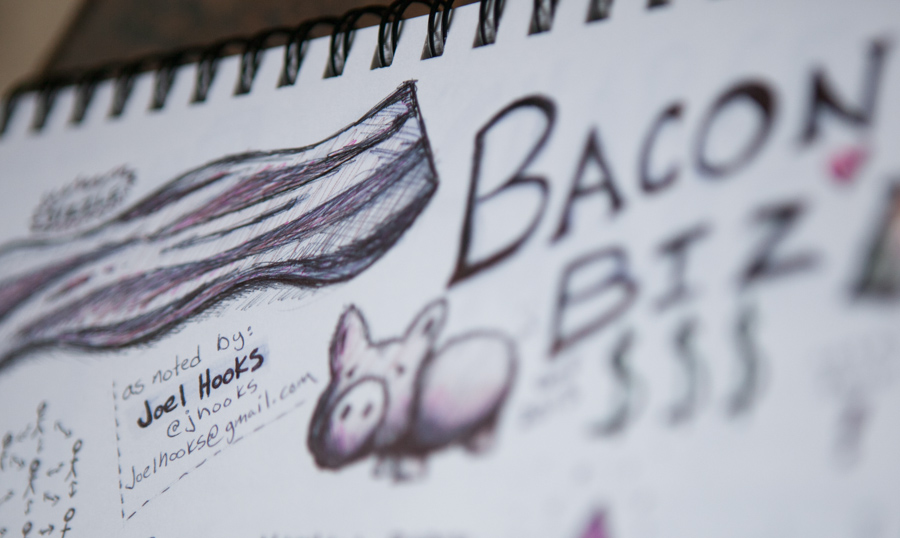 BACON
BIZ
$$$
as noted by:
Joel Hooks
@jhooks
joelhooks@gmail.com